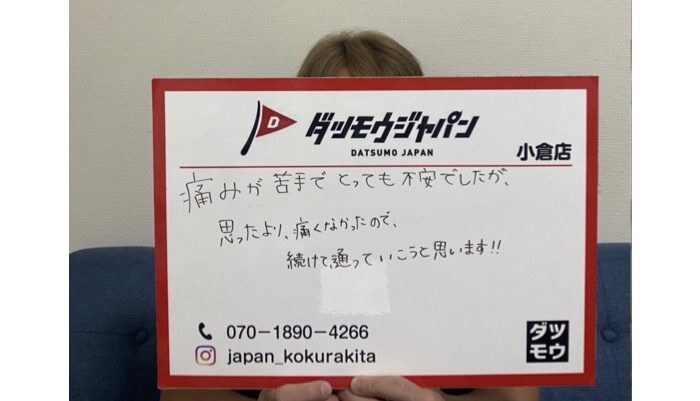 D
ダツモウジャパン
DATSUMO JAPAN
小倉店
痛みが苦手でとっても不安でしたが、
思ったより、痛くなかったので、
続けて通っていこうと思います!!
070-1890-4266
japan_kokurakita
ダツ
モウ